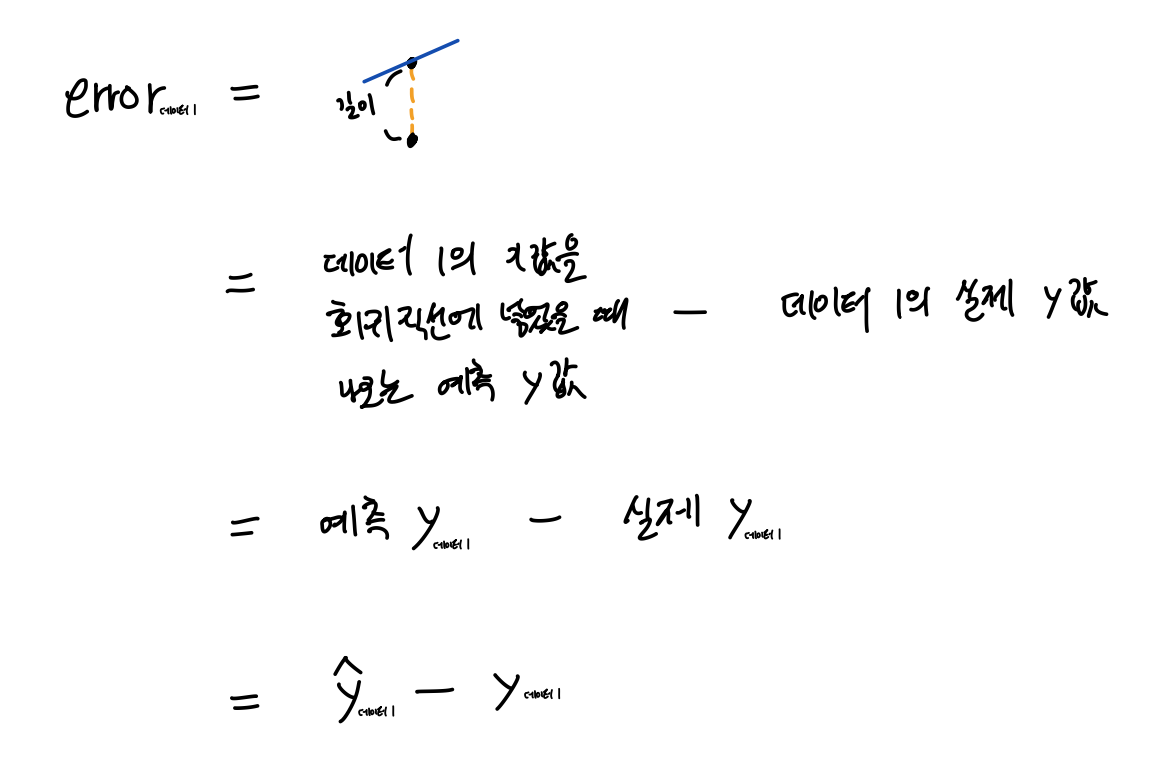 error데이터1 =
길이
= 데이터 1의 x값을
회귀직선에 넣었을 때 - 데이터 1의 실제 y값
나오는 예측 y값
= 예측 y데이터1 - 실제 y데이터1
= ŷ데이터1 - y데이터1